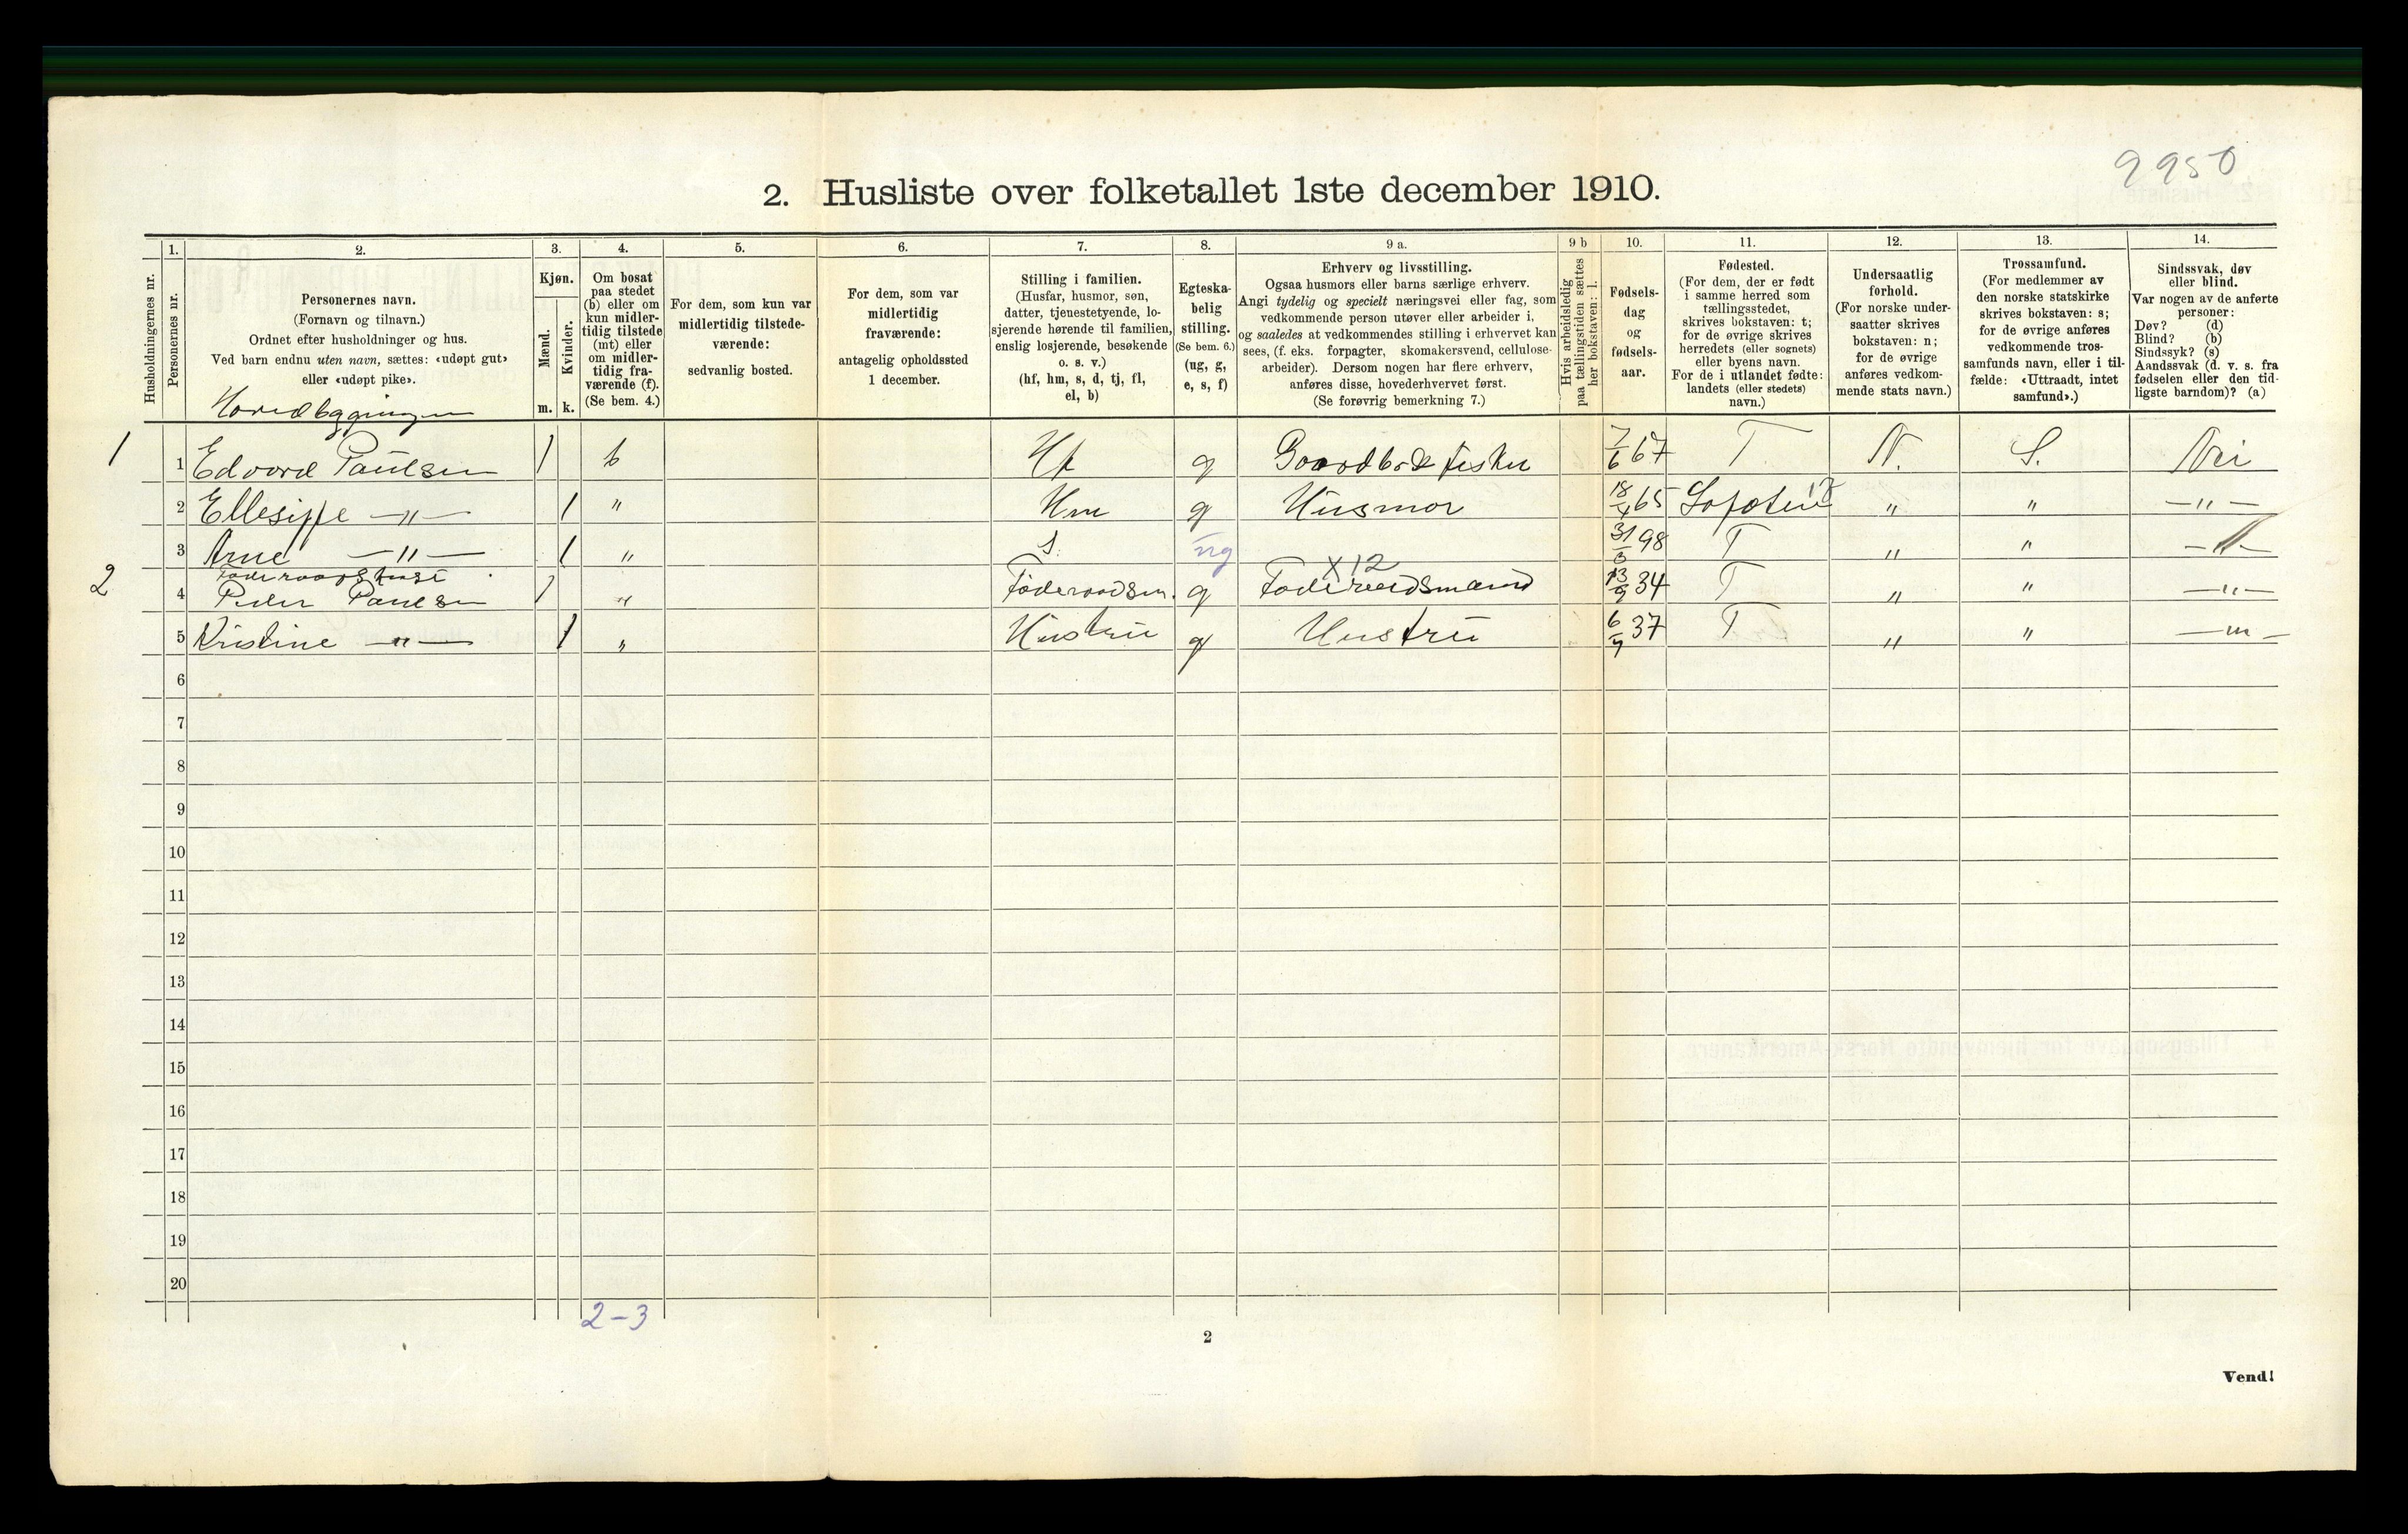 9950
2. Husliste over folketallet 1ste december 1910.
Husholdningernes nr.
1.
Personernes nr.
2.
Personernes navn.
(Fornavn og tilnavn.)
Ordnet efter husholdninger og hus.
Ved barn endnu uten navn, sættes: «udøpt gut»
eller «udøpt pike».
Hovedbygningen
3.
Kjøn.
Mænd.
Kvinder.
m. k.
4.
Om bosat
paa stedet
(b) eller om
kun midler-
tidig tilstede
(mt) eller
om midler-
tidig fra-
værende (f).
(Se bem. 4.)
5.
For dem, som kun var
midlertidig tilstede-
værende:
sedvanlig bosted.
6.
For dem, som var
midlertidig
fraværende:
antagelig opholdssted
1 december.
7.
Stilling i familien.
(Husfar, husmor, søn,
datter, tjenestetyende, lo-
sjerende hørende til familien,
enslig losjerende, besøkende
o. s. v.)
(hf, hm, s, d, tj, fl,
el, b)
8.
Egteska-
belig
stilling.
(Se bem. 6.)
(ug, g,
e, s, f)
9 a.
Erhverv og livsstilling.
Ogsaa husmors eller barns særlige erhverv.
Angi tydelig og specielt næringsvei eller fag, som
vedkommende person utøver eller arbeider i,
og saaledes at vedkommendes stilling i erhvervet kan
sees, (f. eks. forpagter, skomakersvend, cellulose-
arbeider). Dersom nogen har flere erhverv,
anføres disse, hovederhvervet først.
(Se forøvrig bemerkning 7.)
9 b
Hvis arbeidsledig
paa tællingstiden sættes
her bokstaven: l.
10.
Fødsels-
dag
og
fødsels-
aar.
11.
Fødested.
(For dem, der er født
i samme herred som
tællingsstedet,
skrives bokstaven: t;
for de øvrige skrives
herredets (eller sognets)
eller byens navn.
For de i utlandet fødte:
landets (eller stedets)
navn.)
12.
Undersaatlig
forhold.
(For norske under-
saatter skrives
bokstaven: n;
for de øvrige
anføres vedkom-
mende stats navn.)
13.
Trossamfund.
(For medlemmer av
den norske statskirke
skrives bokstaven: s;
for de øvrige anføres
vedkommende tros-
samfunds navn, eller i til-
fælde: «Uttraadt, intet
samfund».)
14.
Sindssvak, døv
eller blind.
Var nogen av de anførte
personer:
Døv? (d)
Blind? (b)
Sindssyk? (s)
Aandssvak (d. v. s. fra
fødselen eller den tid-
ligste barndom)? (a)
1 1 Edvard Paulsen 1 b Hf g Gaardbr & fisker 7/6 67 T N. S. Nei
2 Ellesiffe —"— 1 " Hm g Husmor 18/4 65 Lofoten 18 " " —"—
3 Arne —"— 1 " s. ug 31/3 98 T " " —"—
Føderaadshuset
x12
2 4 Peder Paulsen 1 " Føderaadsm. g Føderaadsmand 13/9 34 T " " —"—
5 Kristine —"— 1 " Hustru g Hustru 6/9 37 T " " —"—
6
7
8
9
10
11
12
13
14
15
16
17
18
19
20
2-3
2
Vend!